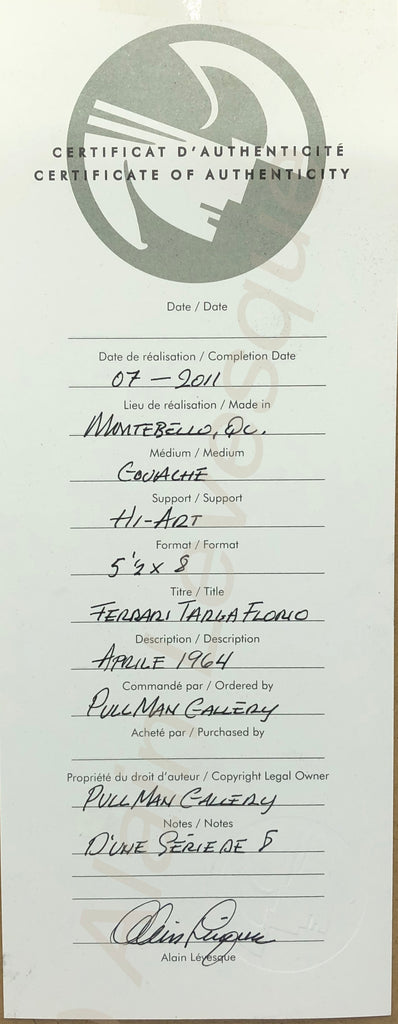 CERTIFICAT D'AUTHENTICITÉ
CERTIFICATE OF AUTHENTICITY
Date / Date
Date de réalisation / Completion Date
07 - 2011
Lieu de réalisation / Made in
MONTEBELLO, QC.
Médium / Medium
GOUACHE
Support / Support
HI-ART
Format / Format
5 1/2 x 8
Titre / Title
FERRARI TARGA FLORIO
Description / Description
APRILE 1964
Commandé par / Ordered by
PULLMAN GALLERY
Acheté par / Purchased by
Propriété du droit d'auteur / Copyright Legal Owner
PULLMAN GALLERY
Notes / Notes
D'UNE SÉRIE DE 8
Alain Lévesque
Alain Lévesque
Alain Lévesque